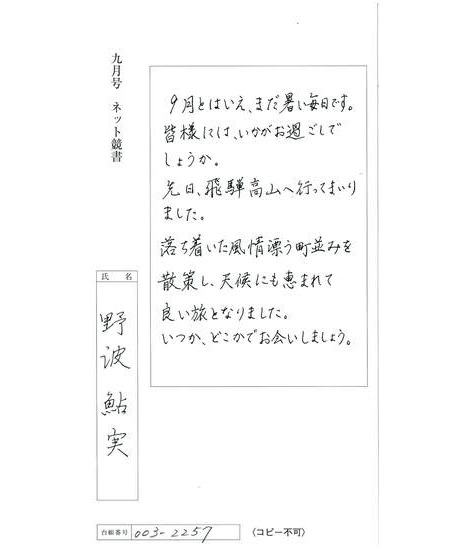 九月号 ネット競書
9月とはいえ、まだ暑い毎日です。
皆様には、いかがお過ごしで
しょうか。
先日、飛騨高山へ行ってまいり
ました。
落ち着いた風情漂う町並みを
散策し、天候にも恵まれて
良い旅となりました。
いつか、どこかでお会いしましょう。
氏名
野波鮎実
台帳番号 003-2257
(コピー不可)